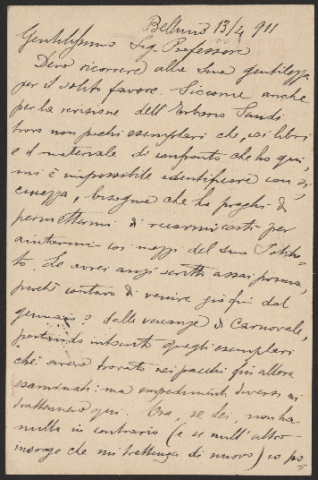 Belluno 13/4 911
Gentilissimo Sig. Professore
Devo ricorrere alla Sua gentilezza
per il solito favore. Siccome anche
per la revisione dell'Erbario Sandi
trovo non pochi esemplari che, coi libri
e il materiale di confronto che ho qui,
mi è impossibile identificare con si-
curezza, bisogna che La preghi di
permettermi di recarmi costì per
aiutarmi coi mezzi del Suo Istitu-
to. Le avrei anzi scritto assai prima,
perchè contavo di venire giù fin dal
gennaio o dalle vacanze di Carnovale,
portando intanto quegli esemplari
che avevo trovato nei pacchi fin allora
esaminati: ma impedimenti diversi mi
trattennero qui. Ora, se Lei non ha
nulla in contrario (e se null'altro
insorge che mi trattenga di nuovo) io po-